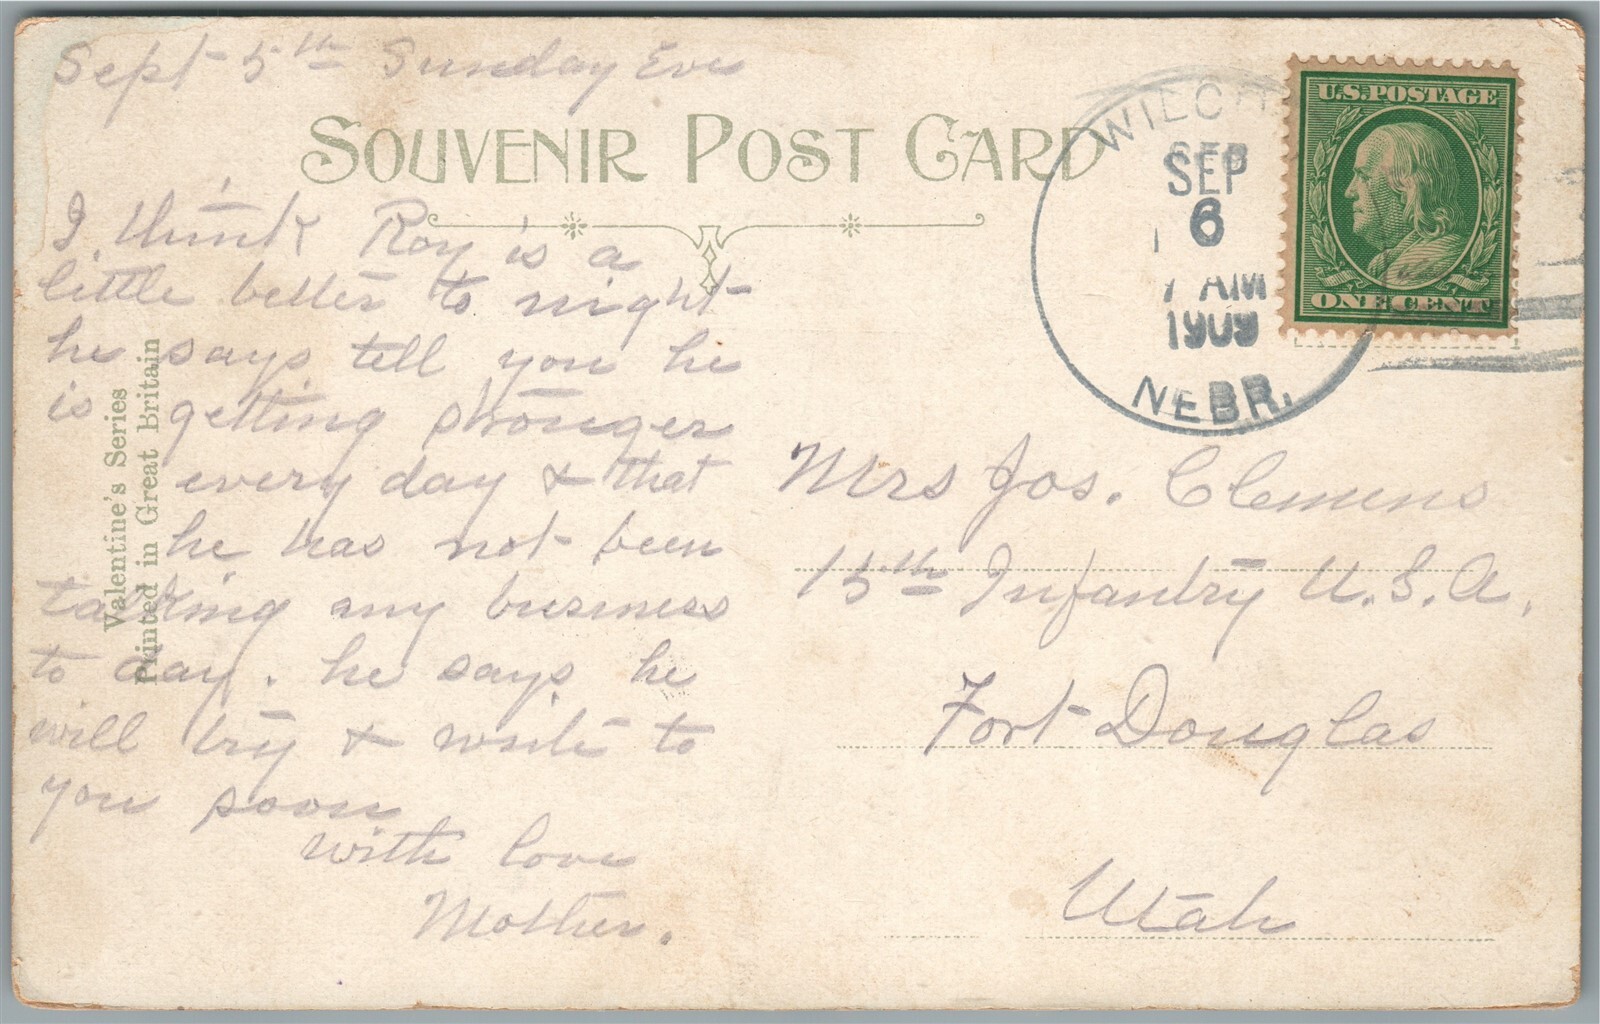 Sept 5th Sunday Eve
SOUVENIR POST CARD
I think Roy is a
little better to night
he says tell you he
is getting stronger
every day & that
he has not been
talking any business
to day. he says he
will try & write to
you soon
with love
Mother.
Valentine's Series
Printed in Great Britain
SEP
6
AM
1909
NEBR.
U.S. POSTAGE
ONE CENT
Mrs Jos. Clemens
15th Infantry U.S.A.
Fort Douglas
Utah